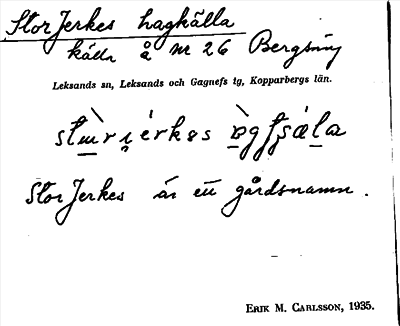 Stor Jerkes haghälla
källa å nr 26 Bergsäng
Leksands sn, Leksands och Gagnefs tg, Kopparbergs län.
Stor Jerkes är ett gårdsnamn.
ERIK M. CARLSSON, 1935.